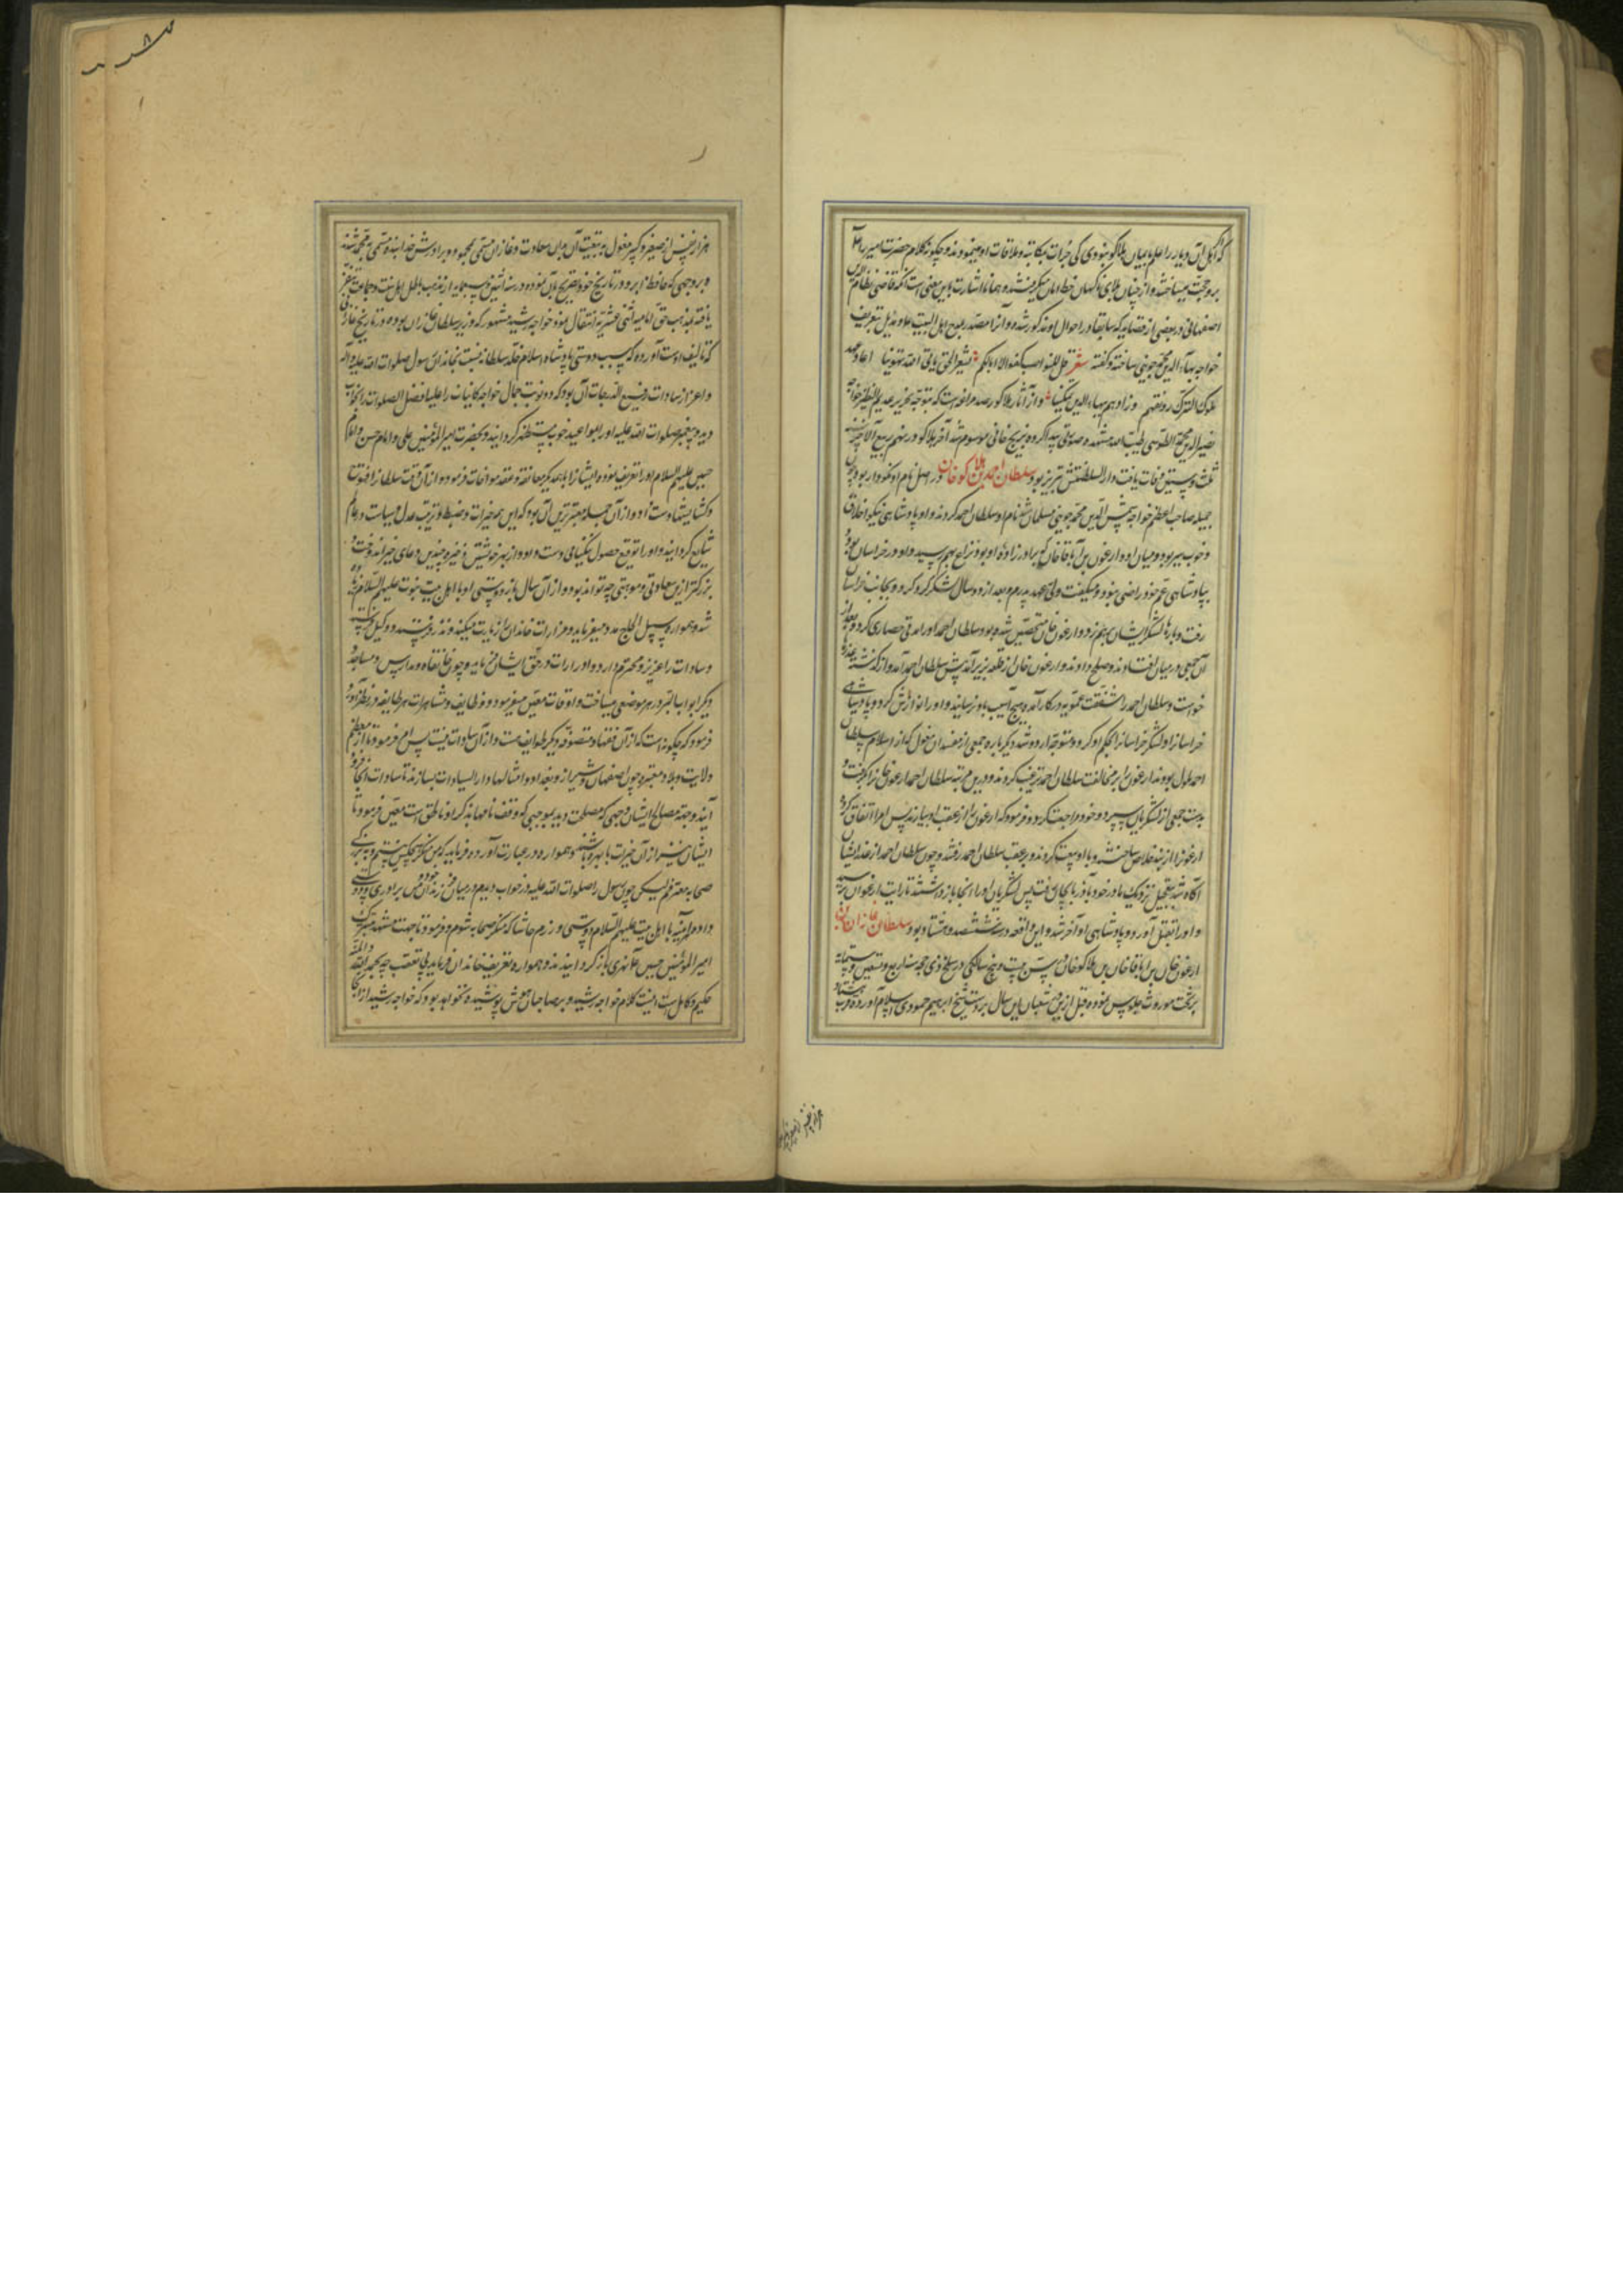 که اهل آن دیار را علم بایمان هلاکو نبودی کی جرأت مکاتبه و ملاقات او مینمودند و چگونه کلام حضرت امیر را
بر و حجت میساختند و از چنان بلای ناگهان خط امان میگرفتند و همانا اشارت باین معنی است آنکه قاضی نظام الدین
اصفهانی در بعضی از قصاید که سابقا در احوال او مذکور شده و آنرا مصدر بمدح اهل البیت علیهم مذیل بتعریف
خواجه بهاء الدین محمد جوینی ساخته و گفته شعر
ملوک الترک رونقهم و زادهم بهاء الدین تمکینا و از آثار هلاکو رصد مراغه است که بتوجه تحریر عدیم النظیر خواجه
نصیر الدین محمد الطوسی طیب الله مشهده صورتی پیدا کرده و بزیج خانی موسوم شد آخر هلاکو در نهم ربیع الآخر سنه
ثلث و ستین وفات یافت و دار السلطنتش تبریز بود سلطان احمد بن هلاکو خان در اصل نام او نکودار بود چون
جمیله صاحب اعظم خواجه شمس الدین محمد جوینی مسلمان شد نام او سلطان احمد کردند و او پادشاهی نیکو اخلاق
و خوب سیر بود و میان او و ارغون بن اباقا خان که برادر زاده او بود نزاع بهم رسید و او در خراسان بود و
بپادشاهی عم خود راضی نبود و میگفت ولی عهد پدرم و بعد از دو سال لشکر کرد کرد و بجانب خراسان
رفت و بارها لشکر ایشان بهم زد و ارغون خان متحصن شده بود سلطان احمد او را مدتی حصاری کرد و بعد از
آن جمعی در میان افتادند و صلح دادند و ارغون خان از قلعه بزیر آمد پیش سلطان احمد آمد و از گذشته عذرها
خواست و سلطان احمد را شفقت عمویه در کار آمده هیچ آسیب باو نرسانید و او را نوازش کرد و پادشاهی
خراسان را و لشکر خراسان را بحکم او کرد و متوجه اردو شد دیگر باره جمعی از مفسدان مغول که از اسلام سلطان
احمد ملول بودند ارغون را بر مخالفت سلطان احمد ترغیب کردند و درین مرتبه سلطان احمد ارغون خان را گرفت و
بدست جمعی از لشکریان سپرد و خود مراجعت کرد و فرمود که ارغون را از عقب او بیارند پس امرا اتفاق کرد
ارغون را از بند خلاص ساختند و با او بیعت کردند و بر عقب سلطان احمد رفتند و چون سلطان احمد از غدر ایشان
آگاه شد بتعجیل نزدیک مادر خود باذربایجان رفت پس لشکریان او را آنجا باز داشتند تا رایت ارغون رسید
و او را بقتل آورد و پادشاهی او آخر شد و این واقعه در ششصد و هشتاد بود سلطان غازان خان بن
ارغون خان بن اباقا خان بن هلاکو خان در سن بیست و پنج سالگی در سلخ ذی حجه سنه اربع و تسعین و ستمایه
بر تخت موروث جلوس نموده قبل ازین در شعبان این سال بر دست شیخ ابراهیم حموی اسلام آورده قرب هشتاد
هزار نفس از
هزار نفس از صغیر و کبیر مغول به تبعیت آن بدان سعادت و غازان مسمی بمحمود و برادرش خدابنده مسمی بمحمد شدند
و بروجهی که حافظ ابرو در تاریخ خود تصریح بآن نموده در سنه اثنین و سبعمایه از مذهب باطل اهل سنت و جماعت تنفر
یافته بمذهب حق امامیه اثنی عشریه انتقال نمود خواجه رشید مشهور که وزیر سلطان غازان بوده در تاریخ غازان
که تالیف اوست آورده که سبب دوستی پادشاه اسلام خلد سلطانه نسبت بخاندان رسول صلوات الله علیه و آله
و اعزاز سادات رفیع الدرجات آن بود که دو نوبت جمال خواجه کاینات را علیه افضل الصلوات بخواب
دید و پیغمبر صلوات الله علیه او را بمواعید خوب مستظهر گردانید و بحضرت امیر المؤمنین علی و امام حسن و امام
حسین علیهم السلام او را تعریف نموده ایشانرا با همدیگر معانقه و عقد مواخات فرمود و از آن وقت سلطانرا فتوح
و گشایشها دست داد و از آن جمله معتبرترین آن بود که این همه خیرات و ضبط و ترتیب عدل و سیاست در عالم
شایع گردانید و او را توفیق حصول نیکنامی دست داد و از بهر خویشتن ذخیره چندین دعای خیر اندوخت و
بزرگتر ازین سعادتی و موهبتی چه تواند بود و از آن سال باز دوستی او با اهل بیت نبوت علیهم السلام زیاده
شد و همواره سبیل الحاج مدد میفرماید و مزارات خاندان را زیارت میکند و نذر و وکیل
و سادات را عزیز و محترم دارد و ادرارات در حق ایشان میفرماید و چون خانقاه و مدارس و مساجد و
دیگر ابواب البر در هر موضعی میساخت و اوقاف معین میفرمود و وظایف و مشاهرات هر طایفه در نظر آورد
فرمود که چگونه است که از آن فقها و متصوفه و دیگر طوایف هست و از آن سادات نیست پس امر فرمود تا از معظم
ولایت و بلاد معتبره چون اصفهان و شیراز و بغداد و امثالها دار السیادات بسازند تا سادات آنجا فرود
آیند و جهت مصالح ایشان وجهی که مصلحت دید بموجبی که وقف نامها بذکر او ناطق است معین فرمود تا
ایشان نیز از آن خیرات با بهره باشند و همواره در عبارت آورده فرماید که من منکر هیچکس نیستم و به بزرگی
صحابه معترفم لیکن چون رسول را صلوات الله علیه در خواب دیدم و میان فرزندان خود و من برادری و دوستی
داده هر آینه با اهل بیت علیهم السلام دوستی ورزم حاشا که منکر صحابه شوم و فرمود تا جهت مشهد متبرک
امیر المؤمنین حسین علا نهری باز گردانیدند و همواره تعریف خاندان فرماید بی تعصب چه بحمد الله و المنه
حکیم و کامل است اینست کلام خواجه رشید و بر صاحبان هوش پوشیده نخواهد بود که خواجه رشید از آنجا